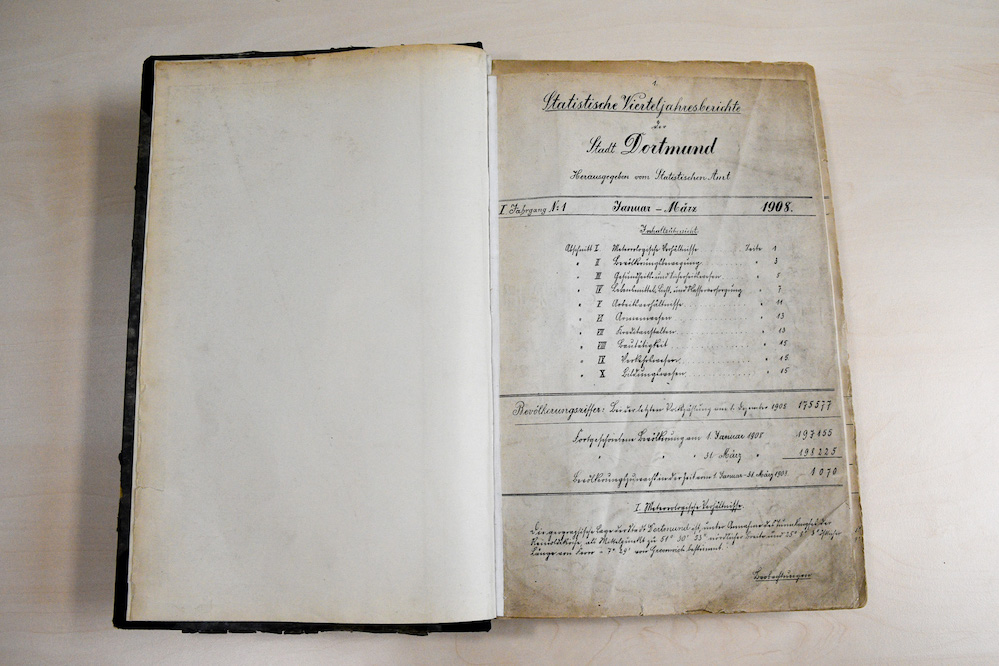 1.
Statistische Vierteljahresberichte
der
Stadt Dortmund
Herausgegeben vom Statistischen Amt
I. Jahrgang Nº: 1 Januar – März 1908.
Inhaltsübersicht.
Abschnitt I. Meteorologische Verhältnisse Seite 1
" II Bevölkerungsbewegung " 3
" III Gesundheits- und " 5
" IV Lebensmittel, Licht- und Wasserversorgung " 7
" V Arbeitsverhältnisse " 11
" VI Armenwesen " 13
" VII Kreditanstalten " 13
" VIII Bautätigkeit " 15
" IX Verkehrswesen " 15
" X Bildungswesen " 15
Bevölkerungsziffer: Bei der letzten Volkszählung am 1. Dezember 1905 175577
Fortgeschriebene Bevölkerung am 1. Januar 1908 197155
" " " 31. März " 198225
Bevölkerungszuwachs in der Zeit vom 1. Januar - 31. März 1908 1070
I. Meteorologische Verhältnisse.
Die geographische Lage der Stadt Dortmund ist, unter Annahme des der
Reinoldikirche als Mittelpunkt zu 51° 30' 53" nördlicher Breite und 25° 8' östlicher
Länge von Ferro = 7° 29' von Greenwich bestimmt.
Beobachtungen